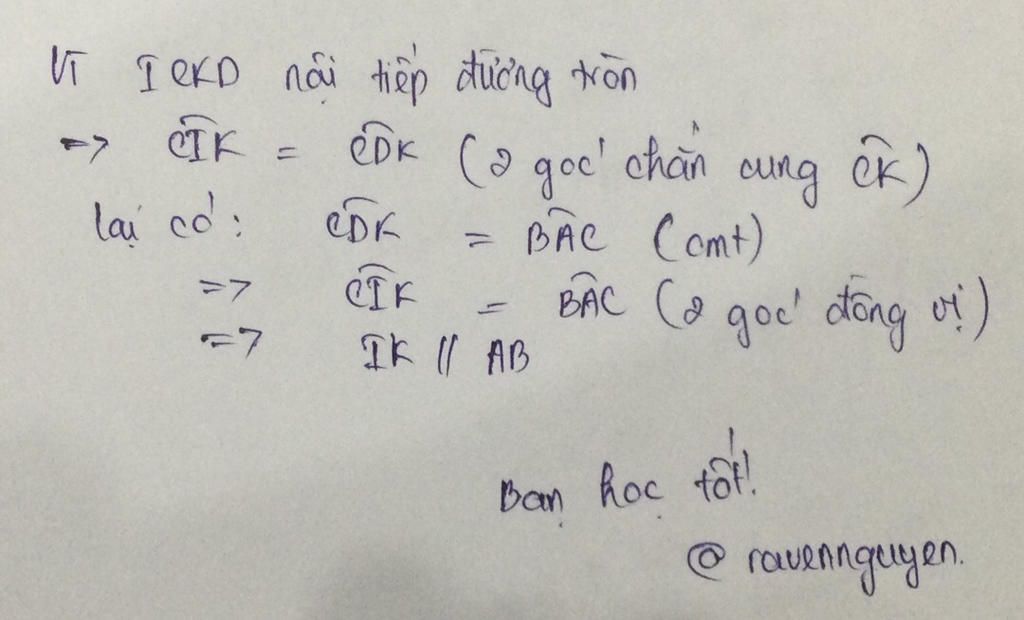 Vì ICKD nội tiếp đường tròn
=> CÎK = CD̂K (2 góc chắn cung CK̂)
lại có: CD̂K = BÂC (cmt)
=> CÎK = BÂC (2 góc đồng vị)
=> IK // AB
Bạn học tốt!
@ ravennguyen.